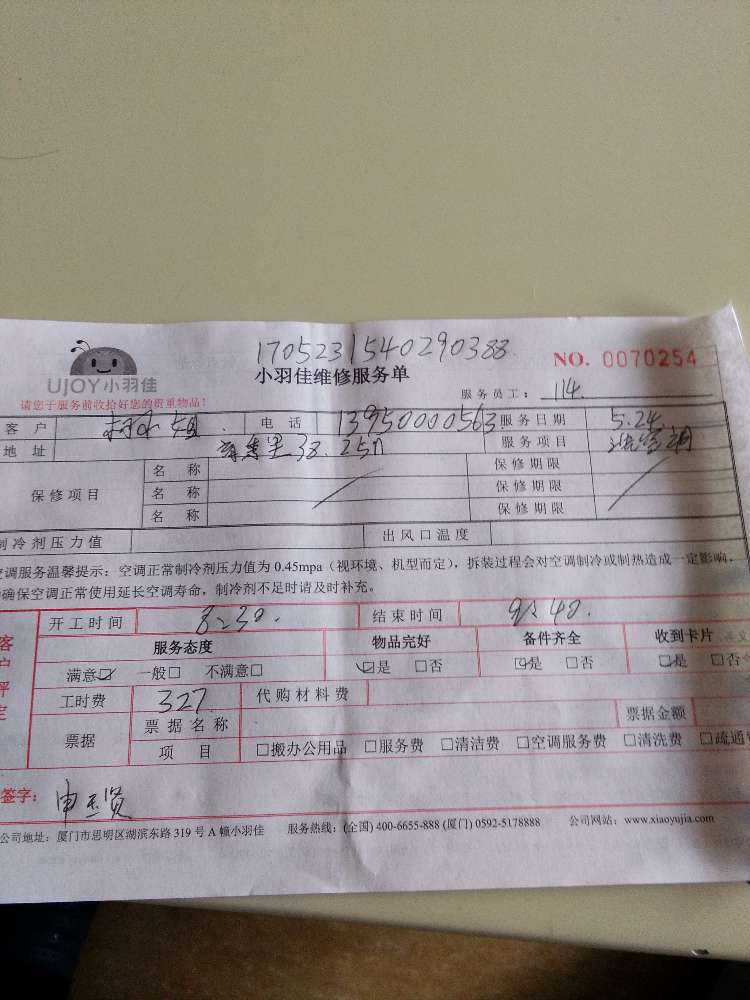 1705231540290388
UJOY小羽佳
小羽佳维修服务单
NO. 0070254
请您于服务前收拾好您的贵重物品!
服务员工: 114.
客户 电话 13950000563 服务日期 5.24
地址 38. 服务项目
保修项目 名称 保修期限
名称 保修期限
名称 保修期限
制冷剂压力值 出风口温度
空调服务温馨提示:空调正常制冷剂压力值为 0.45mpa(视环境、机型而定),拆装过程会对空调制冷或制热造成一定影响,
确保空调正常使用延长空调寿命,制冷剂不足时请及时补充。
开工时间 8:30. 结束时间 9:40.
客户评定 服务态度 物品完好 备件齐全 收到卡片
满意☑ 一般□ 不满意□ ☑是 □否 ☑是 □否 ☑是 □否
工时费 327. 代购材料费
票据 票据名称 票据金额
项目 □搬办公用品 □服务费 □清洁费 □空调服务费 □清洗费 □疏通
签字: 申玉贤
公司地址:厦门市思明区湖滨东路 319 号 A 幢小羽佳 服务热线:(全国) 400-6655-888 (厦门) 0592-5178888 公司网站:www.xiaoyujia.com